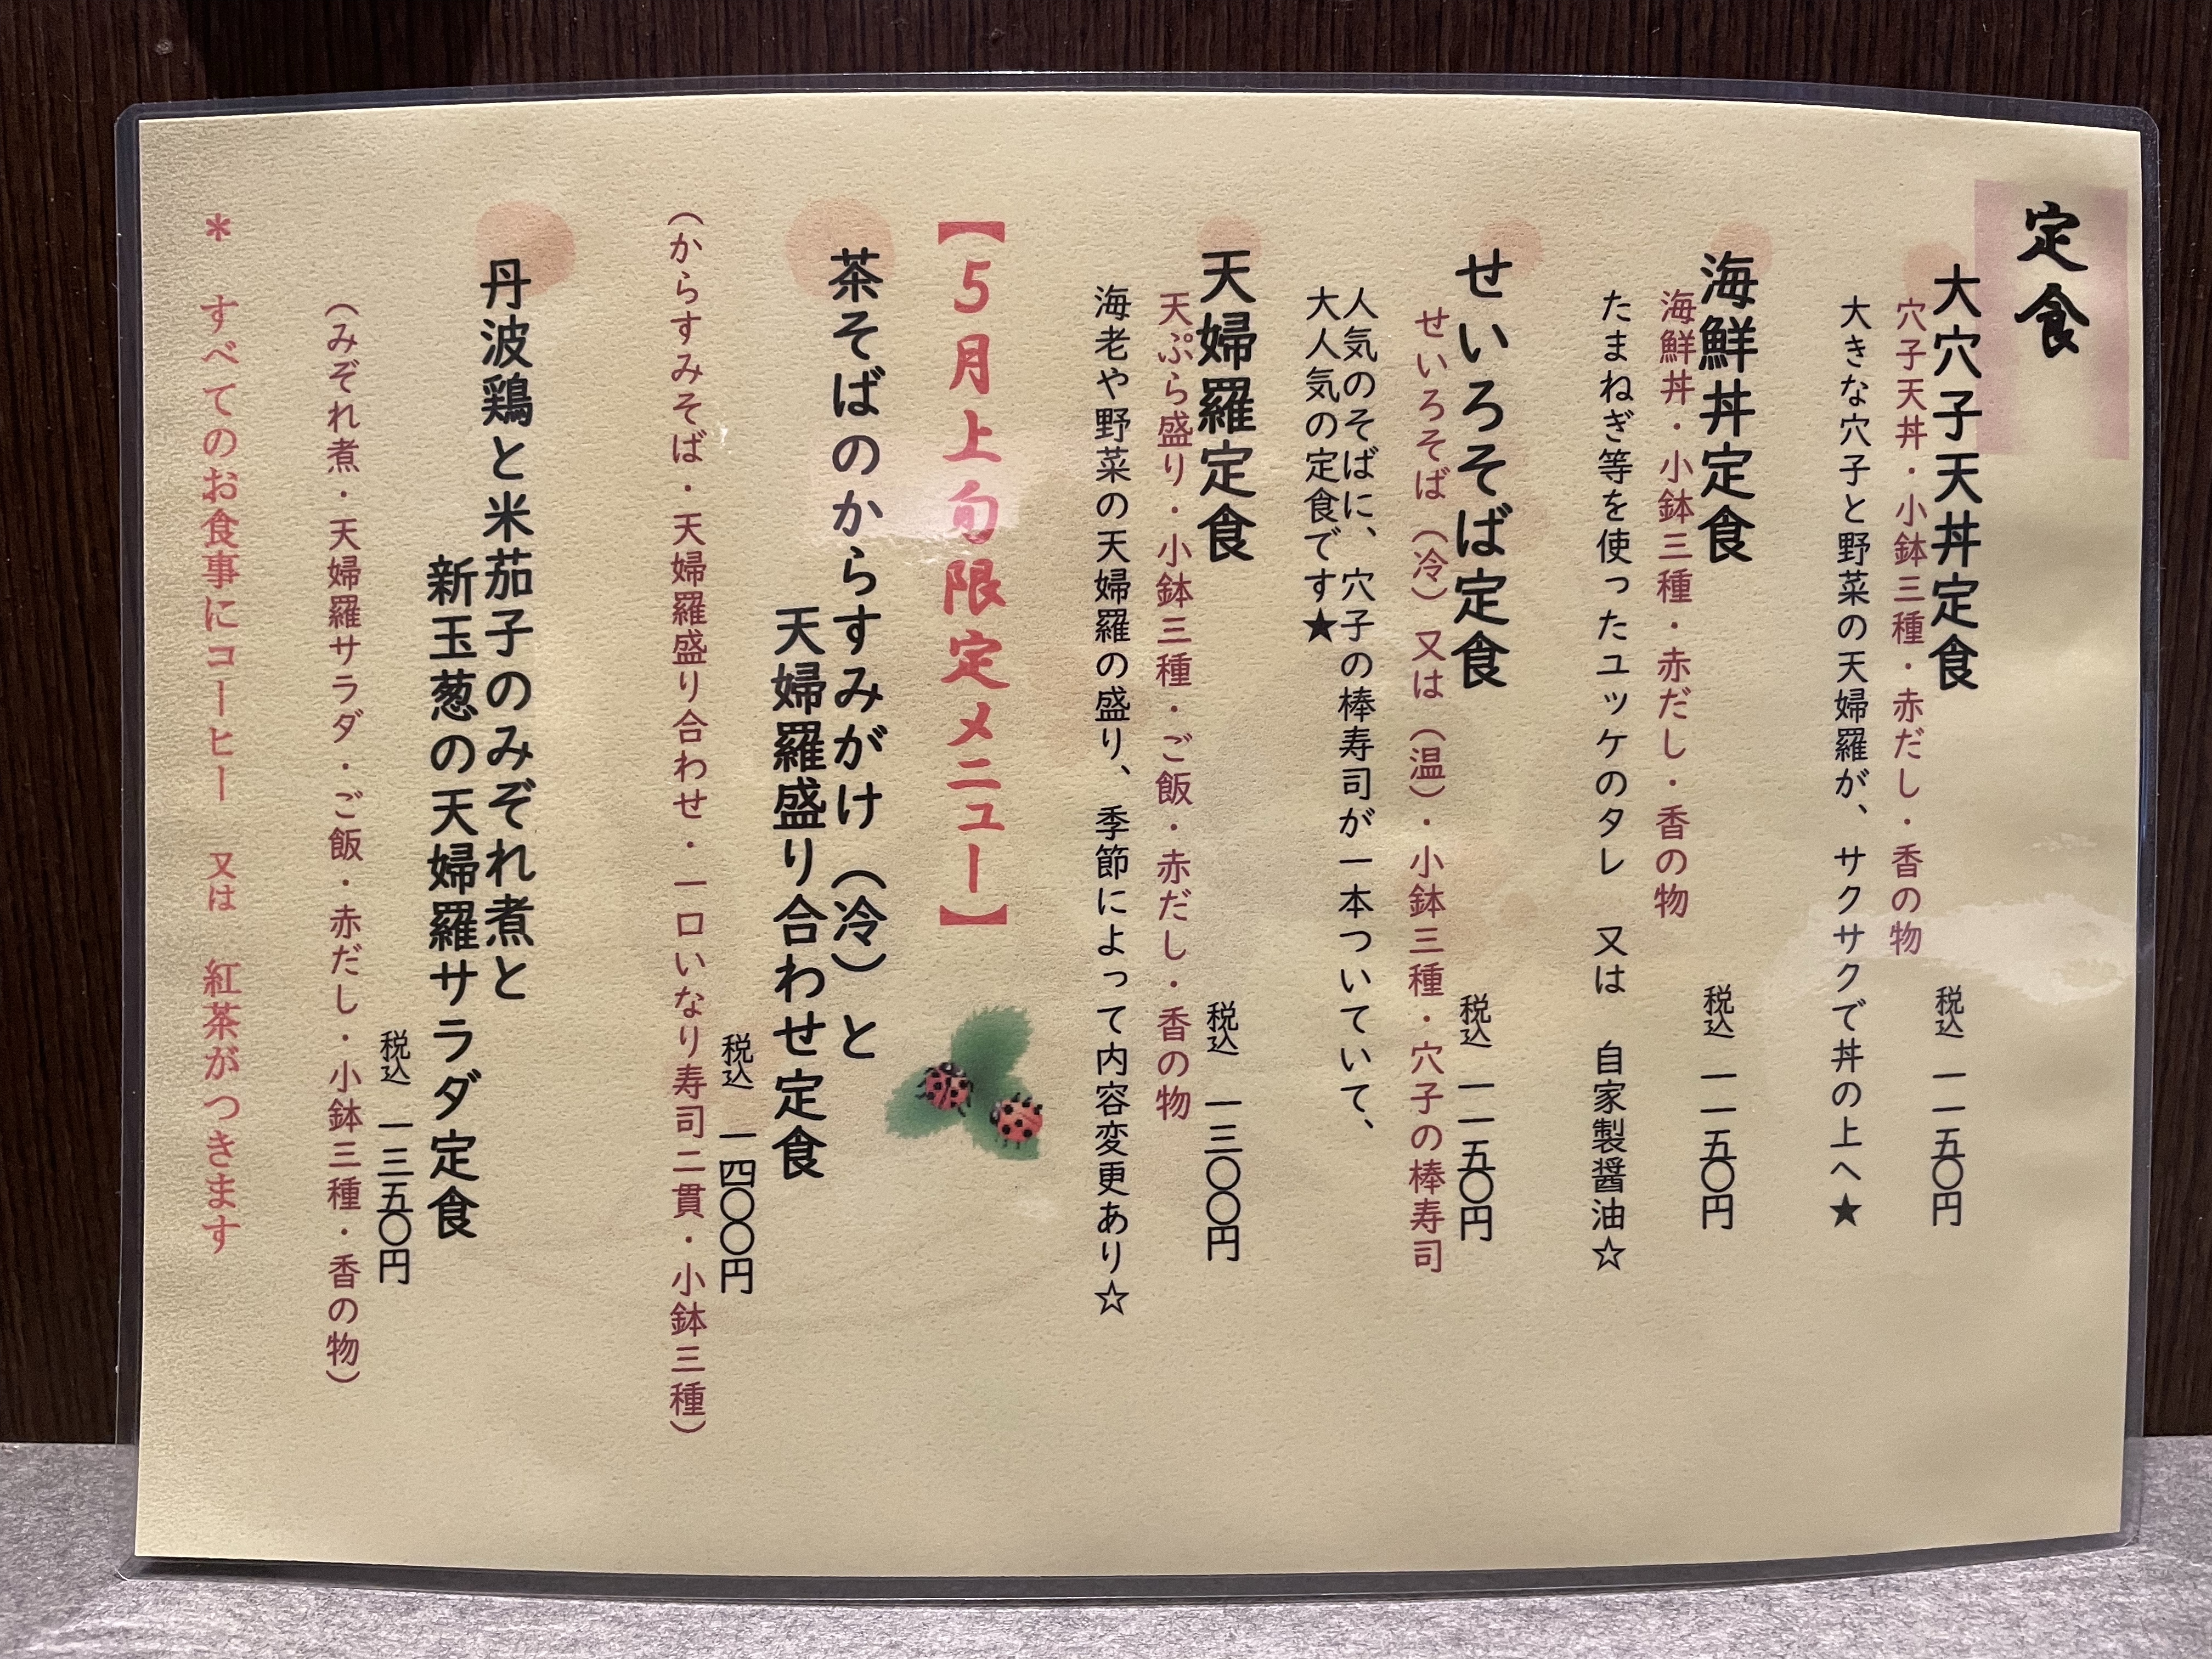 定食
大穴子天丼定食 税込 一一五〇円
穴子天丼・小鉢三種・赤だし・香の物
大きな穴子と野菜の天婦羅が、サクサクで丼の上へ★
海鮮丼定食 税込 一一五〇円
海鮮丼・小鉢三種・赤だし・香の物
たまねぎ等を使ったユッケのタレ 又は 自家製醤油☆
せいろそば定食 税込 一一五〇円
せいろそば（冷）又は（温）・小鉢三種・穴子の棒寿司
人気のそばに、穴子の棒寿司が一本ついていて、
大人気の定食です★
天婦羅定食 税込 一三〇〇円
天ぷら盛り・小鉢三種・ご飯・赤だし・香の物
海老や野菜の天婦羅の盛り、季節によって内容変更あり☆
【５月上旬限定メニュー】
茶そばのからすみがけ（冷）と
天婦羅盛り合わせ定食
税込 一四〇〇円
（からすみそば・天婦羅盛り合わせ・一口いなり寿司二貫・小鉢三種）
丹波鶏と米茄子のみぞれ煮と
新玉葱の天婦羅サラダ定食
税込 一三五〇円
（みぞれ煮・天婦羅サラダ・ご飯・赤だし・小鉢三種・香の物）
＊ すべてのお食事にコーヒー 又は 紅茶がつきます